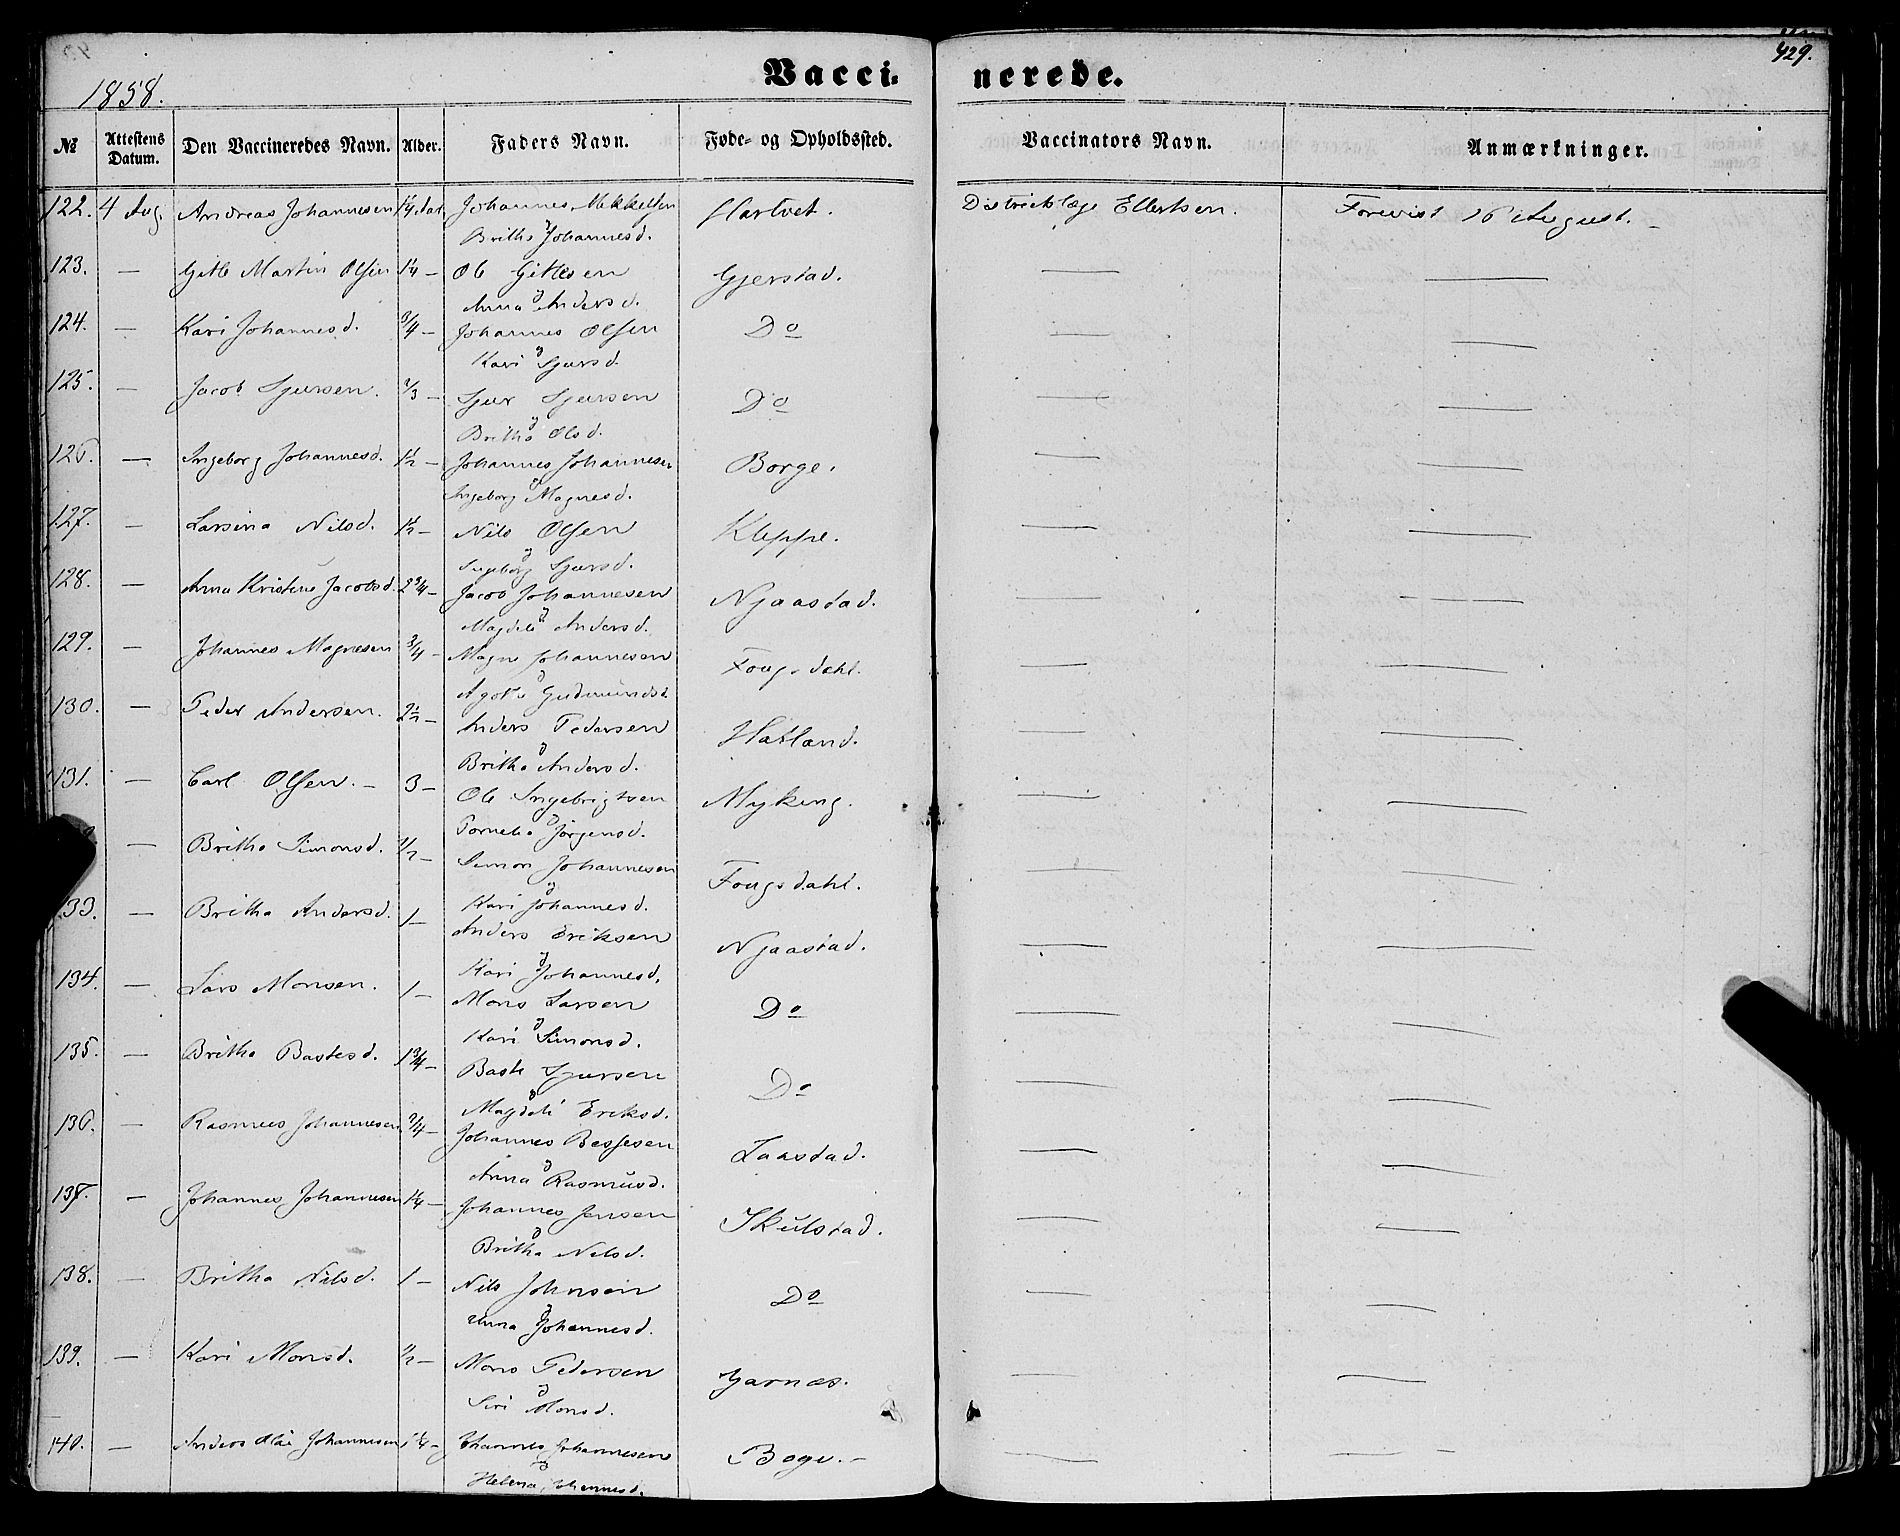 429.
1858.
Vacci- nerede.
№ Attestens Datum. Den Vaccineredes Navn. Alder. Faders Navn. Føde- og Opholdssted. Vaccinators Navn. Anmærkninger.
122. 4 Aug. Andreas Johannesen 1 1/4 Aar Johannes Mikkelsen Hartvet. Districtslæge Ellertsen. Forevist 16 August. –
Britha Johannesd.
123. — Gitle Martin Olsen 1 1/4 — Ole Gitlesen Gjerstad. — —
Anna Andersd.
124. — Kari Johannesd. 3/4 — Johannes Olsen Do — —
Kari Sjursd.
125. — Jacob Sjursen. 2/3 — Sjur Sjursen Do — —
Britha Olsd.
126. — Ingeborg Johannesd. 1 1/2 — Johannes Johannesen Borge. — —
Ingeborg Magnesd.
127. — Larsina Nilsd. 1 1/2 — Nils Olsen Kleppe. — —
Ingeborg Sjursd.
128. — Anna Kristine Jacobsd. 2 3/4 — Jacob Johannesen Njaastad. — —
Magdeli Andersd.
129. — Johannes Magnesen 3/4 — Magne Johannesen Fougsdahl. — —
Agota Gudmundsd.
130. — Peder Andersen. 2 1/2 — Anders Pedersen Hatland. — —
Britha Andersd.
131. — Carl Olsen. — 3 — Ole Ingebrigtsen Myking. — —
Jørgensd.
— Britha Simonsd. 1/2 — Simon Johannesen Fougsdahl. — —
Kari Johannesd.
133. — Britha Andersd. 1 — Anders Eriksen Njaastad. — —
Kari Johannesd.
134. — Lars Monsen. 1 — Mons Larsen Do — —
Kari Simonsd.
135. — Britha Bastesd. 1 3/4 — Baste Sjursen Do — —
Magdeli Eriksd.
136. — Rasmus Johannesen 3/4 — Johannes Bessesen Laastad. — —
Anna Rasmusd.
137. — Johannes Johannesen 1 1/4 — Johannes Jensen Skulstad. — —
Britha Nilsd.
138. — Britha Nilsd. 1 — Nils Johnsen Do — —
Anna Johannesd.
139. — Kari Monsd. 1/2 — Mons Pedersen Garnæs. — —
Siri Monsd.
140. — Anders Olai Johannesen 1 1/4 — Johannes Johannesen Boge. — — —
Helena Johannesd.